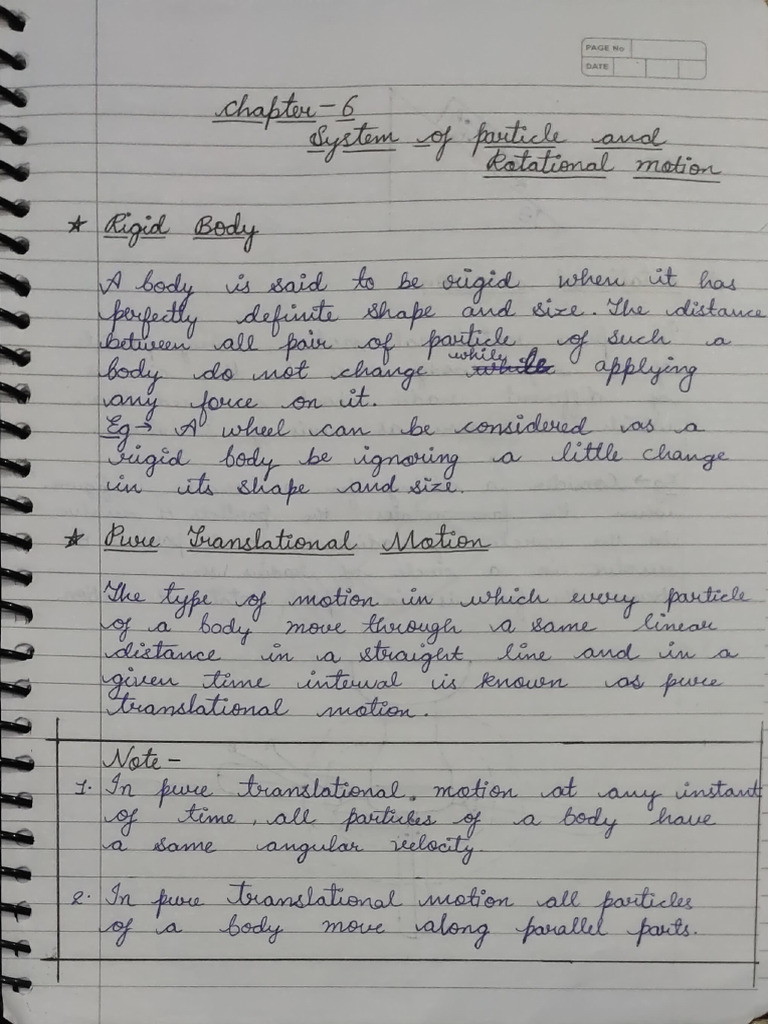 PAGE No
DATE
Chapter-6
System of particle and
Rotational motion
★ Rigid Body
A body is said to be rigid when it has
perfectly definite shape and size. The distance
between all pair of particle of such a
body do not change while applying
any force on it.
Eg→ A wheel can be considered as a
rigid body be ignoring a little change
in its shape and size.
★ Pure Translational Motion
The type of motion in which every particle
of a body move through a same linear
distance in a straight line and in a
given time interval is known as pure
translational motion.
Note-
1. In pure translational. motion at any instant
of time, all particles of a body have
a same angular velocity.
2. In pure translational motion all particles
of a body move along parallel parts.